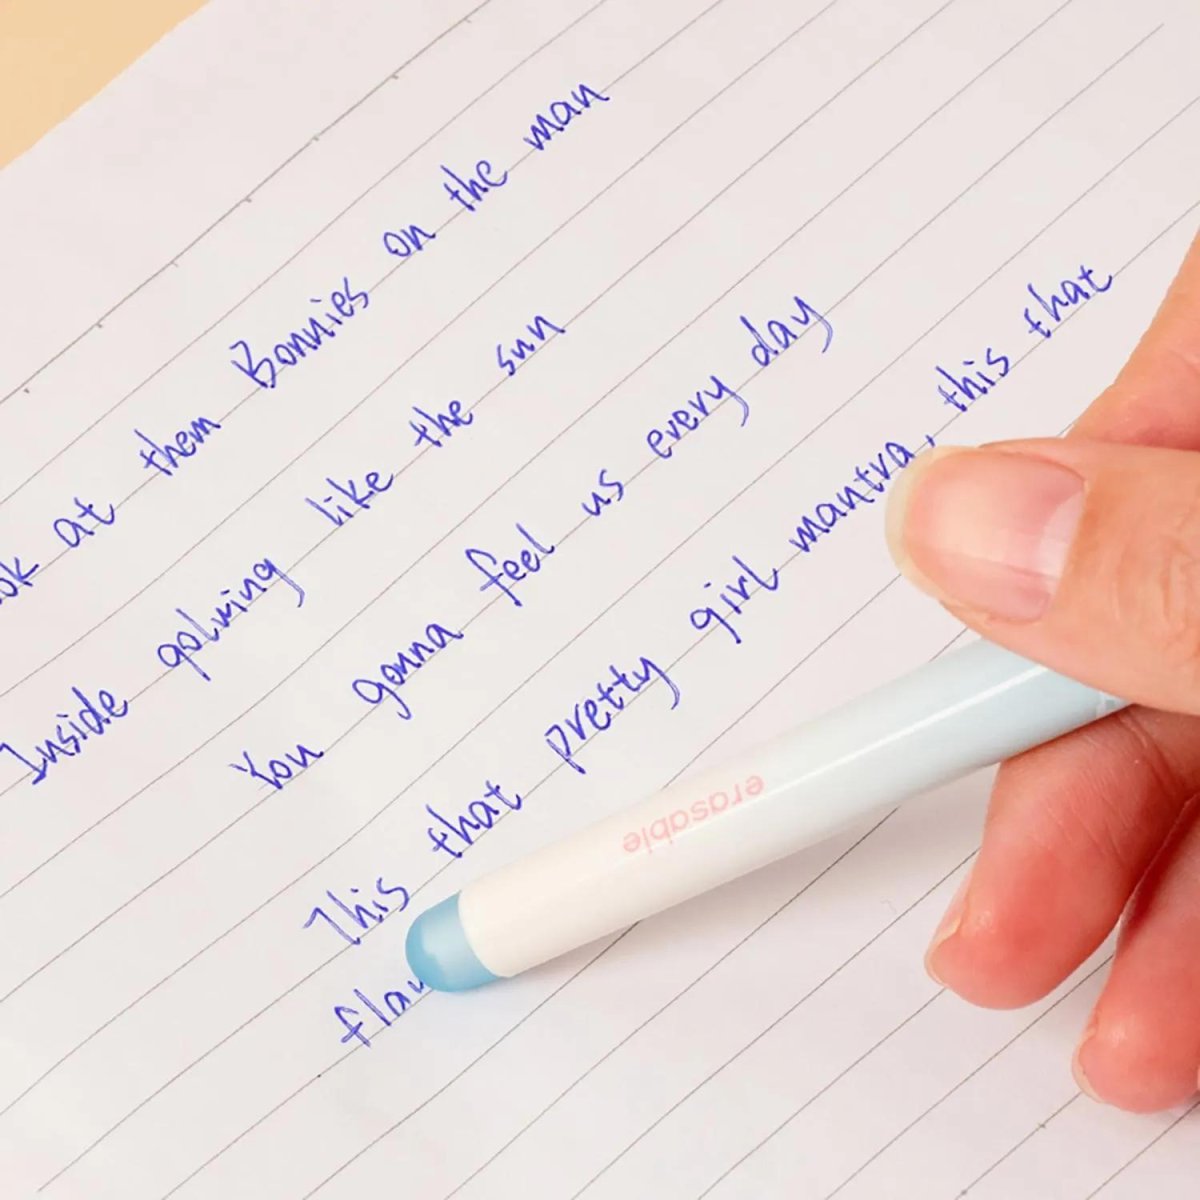 ok at them Bonnies on the man
Inside golwing like the sun
You gonna feel us every day
This that pretty girl mantra, this that
flaw
erasable